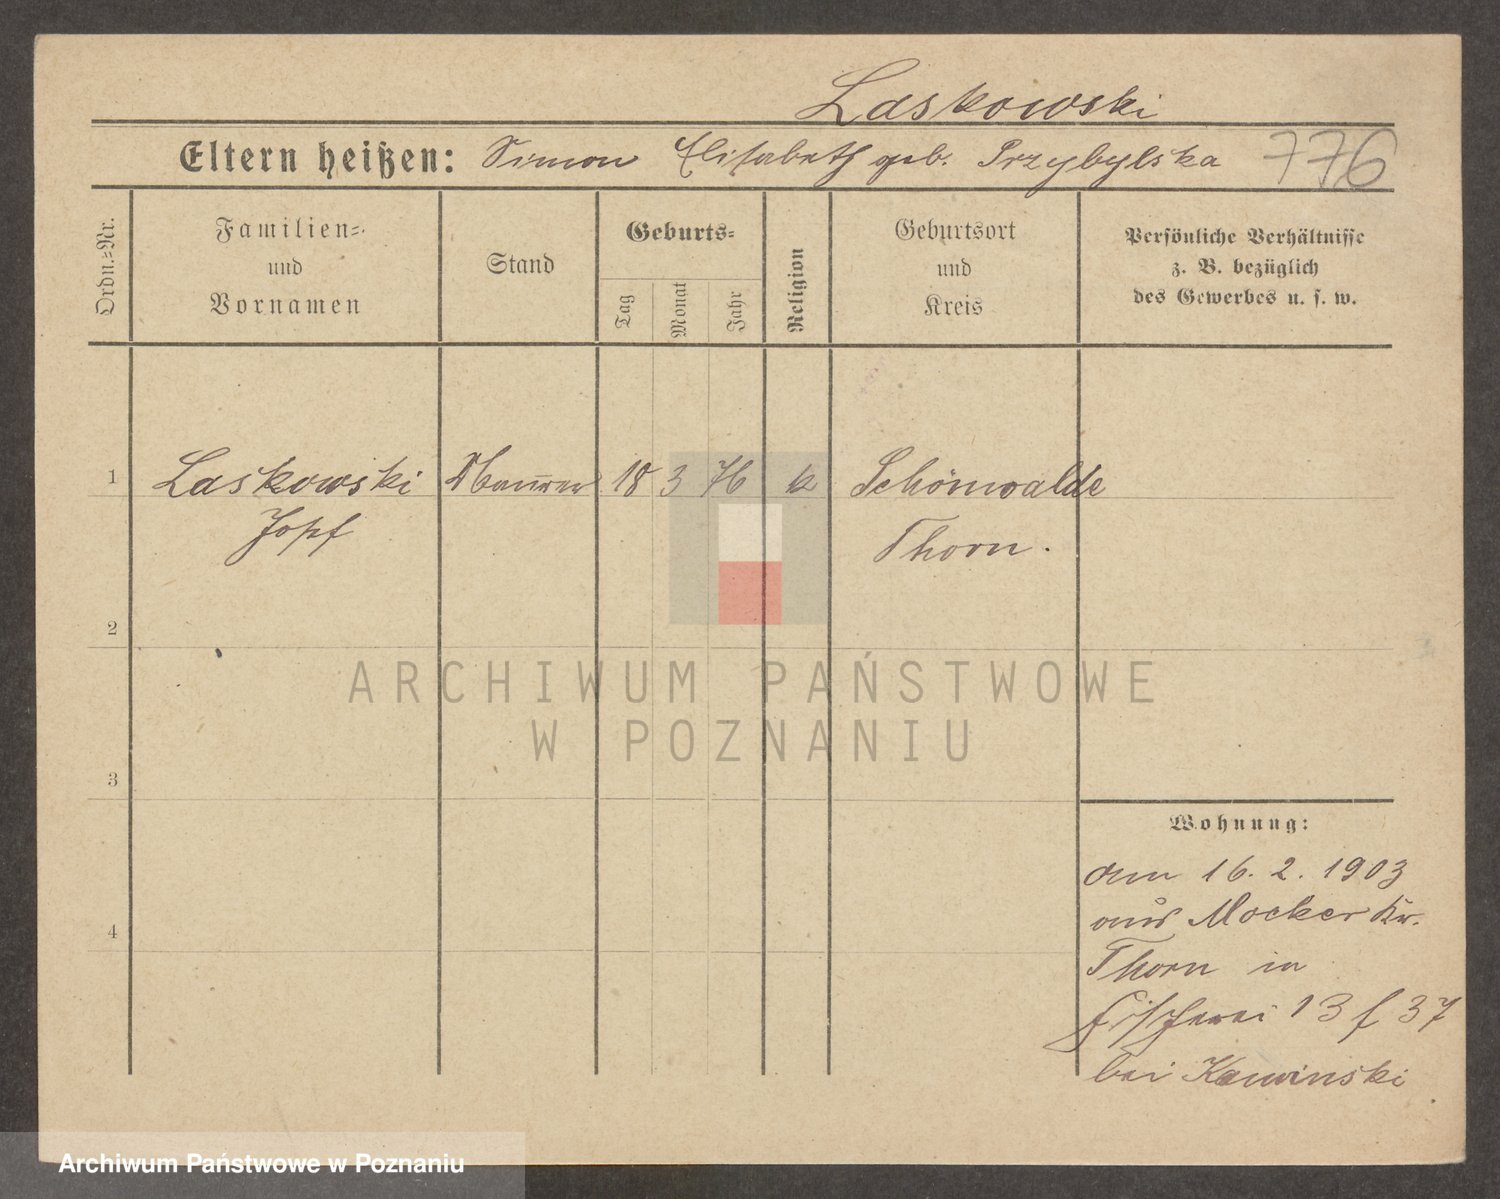 Laskowski
Eltern heißen: Simon Elisabeth geb. Przybylska 776
Ordn.=Nr.
Familien=
und
Vornamen
Stand
Geburts=
Tag
Monat
Jahr
Religion
Geburtsort
und
Kreis
Persönliche Verhältnisse
z. B. bezüglich
des Gewerbes u. s. w.
1 Laskowski Maurer 18 3 76 k Schönwalde
Josef Thorn.
2
ARCHIWUM PAŃSTWOWE
W POZNANIU
3
Wohnung:
am 16. 2. 1903
aus Mocker Kr.
4
Thorn in
Fischerei 13 f 37
bei Kawinski
Archiwum Państwowe w Poznaniu